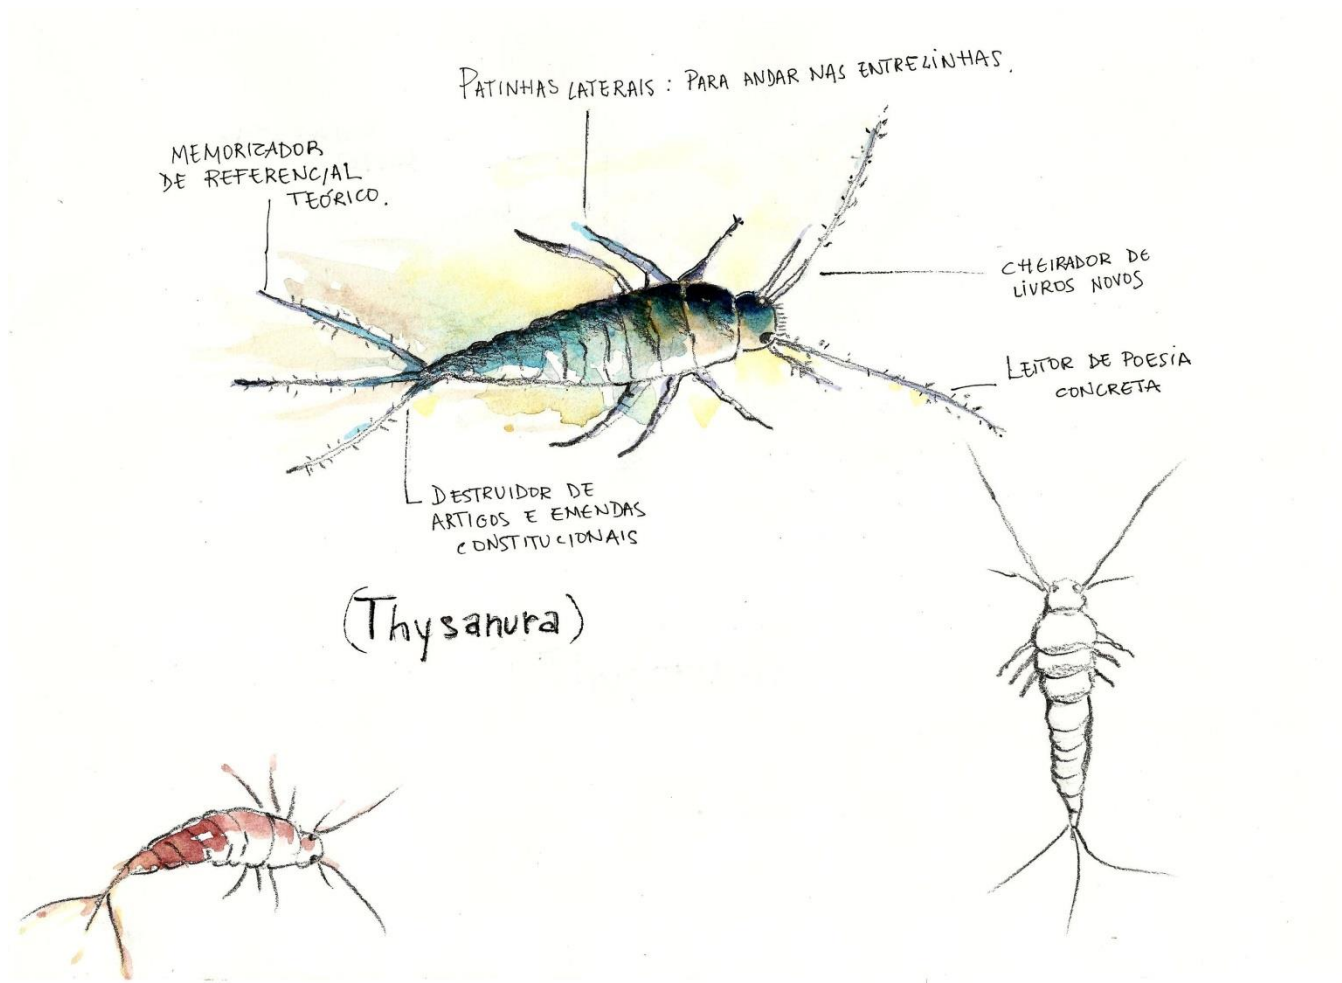 PATINHAS LATERAIS: PARA ANDAR NAS ENTRELINHAS.
MEMORIZADOR
DE REFERENCIAL
TEÓRICO.
CHEIRADOR DE
LIVROS NOVOS
LEITOR DE POESIA
CONCRETA
DESTRUIDOR DE
ARTIGOS E EMENDAS
CONSTITUCIONAIS
(Thysanura)